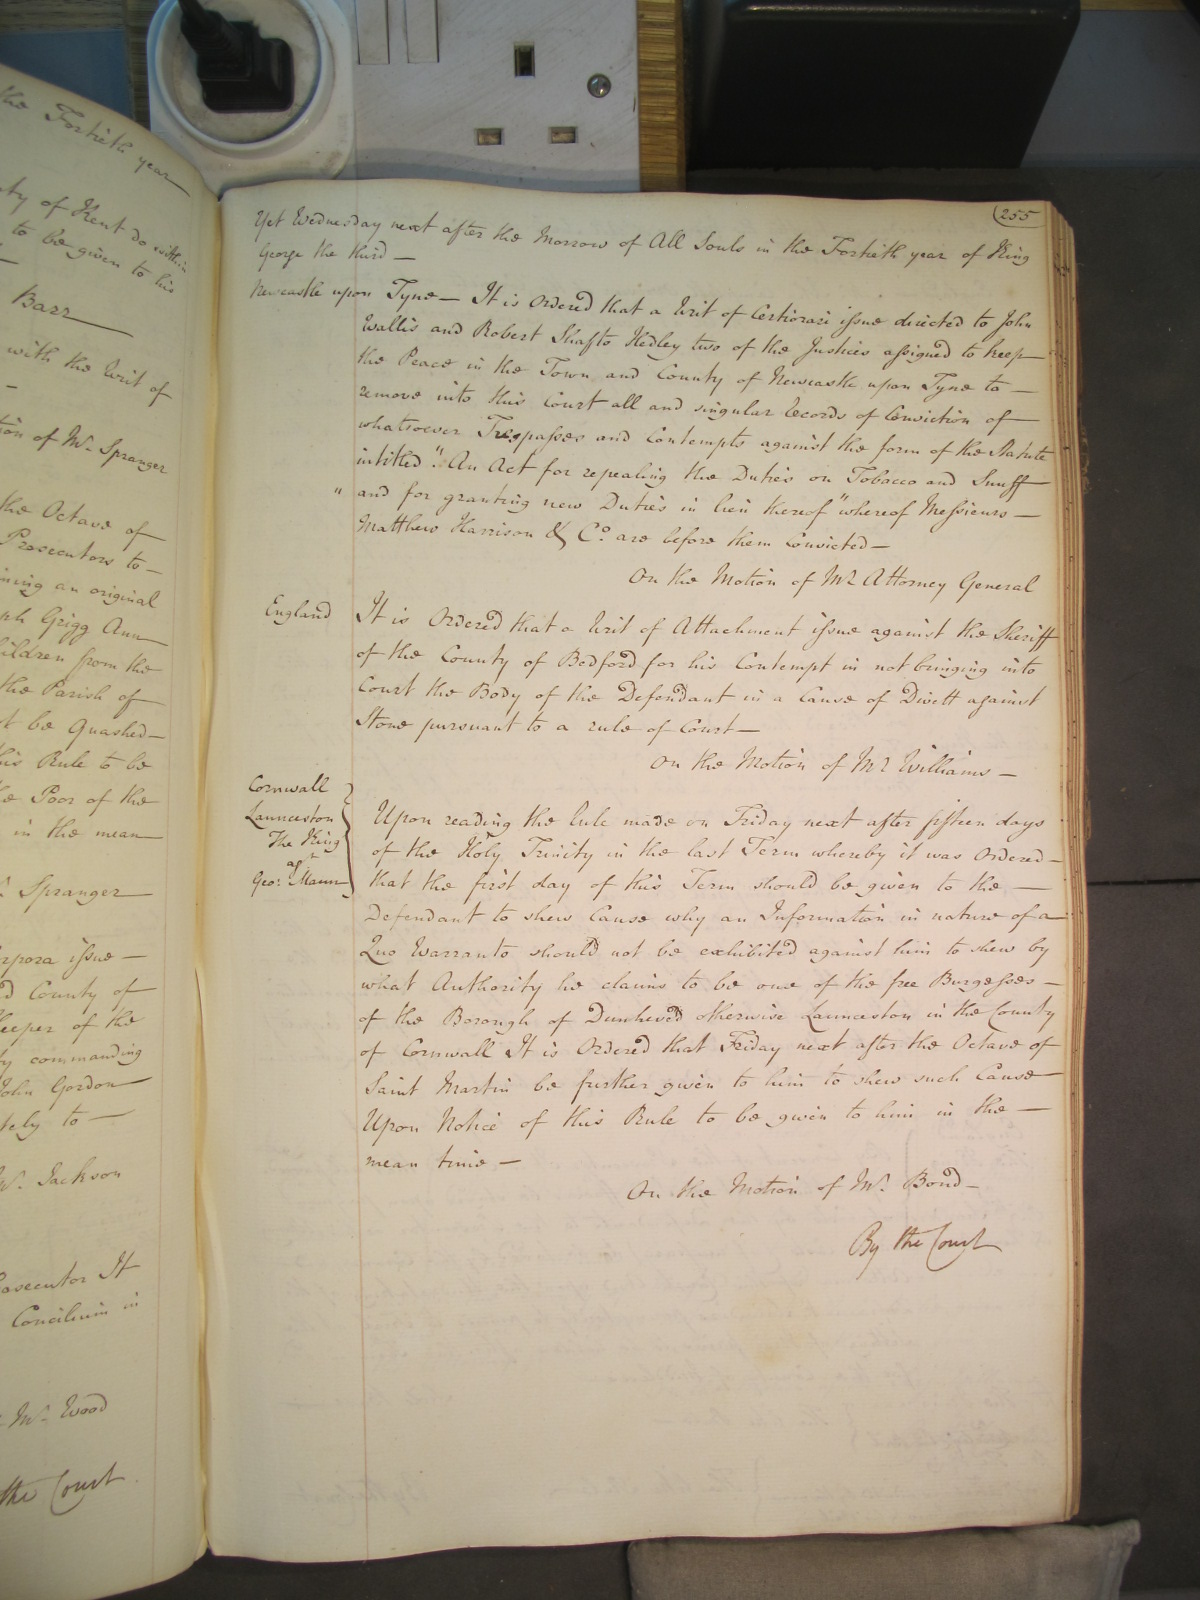 the Fortieth year
nty of Kent do within
to be given to his
Barr
with the Writ of
tion of Mr. Spranger
the Octave of
Prosecutors to
ining an original
ph Grigg Ann
hildren from the
the Parish of
t be Quashed
his Rule to be
he Poor of the
in the mean
Spranger
orpora issue
d County of
Keeper of the
y commanding
John Gordon
tely to
Mr. Jackson
rosecutor It
Concilium in
Mr. Wood
the Court
255
Yet Wednesday next after the Morrow of All Souls in the Fortieth year of King
George the third —
Newcastle upon Tyne — It is Ordered that a Writ of Certiorari issue directed to John
Wallis and Robert Shafto Hedley two of the Justices assigned to keep
the Peace in the Town and County of Newcastle upon Tyne to —
remove into this Court all and singular Records of Conviction of
whatsoever Trespasses and Contempts against the form of the Statute
intitled "An Act for repealing the Duties on Tobacco and Snuff
" and for granting new Duties in lieu thereof" whereof Messieurs —
Matthew Harrison & Co. are before them Convicted —
On the Motion of Mr Attorney General
England It is Ordered that a Writ of Attachment issue against the Sheriff
of the County of Bedford for his Contempt in not bringing into
Court the Body of the Defendant in a Cause of Divett against
Stone pursuant to a rule of Court —
On the Motion of Mr Williams —
Cornwall
Launceston
The King
agst
Geo: Mann
Upon reading the Rule made on Friday next after fifteen days
of the Holy Trinity in the last Term whereby it was Ordered —
that the first day of this Term should be given to the —
Defendant to shew Cause why an Information in nature of a
Quo Warranto should not be exhibited against him to shew by
what Authority he claims to be one of the free Burgesses —
of the Borough of Dunheved otherwise Launceston in the County
of Cornwall It is Ordered that Friday next after the Octave of
Saint Martin be further given to him to shew such Cause
Upon Notice of this Rule to be given to him in the —
mean time —
On the Motion of Mr. Bond —
By the Court